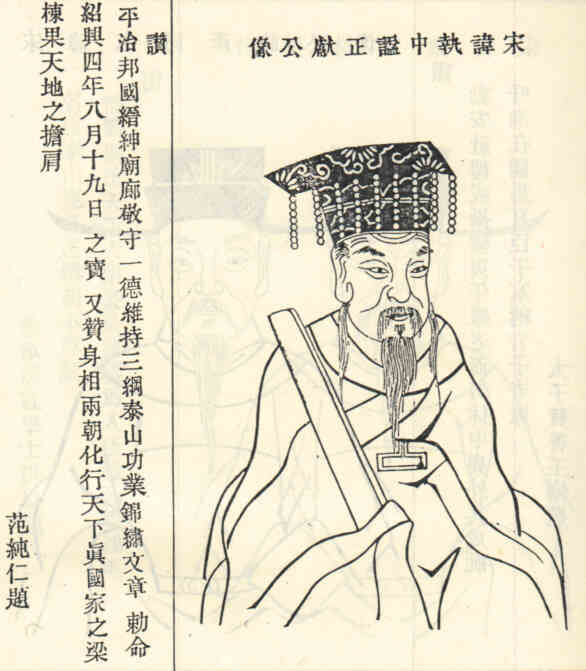 宋諱執中諡正獻公像
讚
平治邦國縉紳廟廊敬守一德維持三綱泰山功業錦繡文章 勅命
紹興四年八月十九日 之寶 又贊身相兩朝化行天下眞國家之梁
棟果天地之擔肩
范純仁題